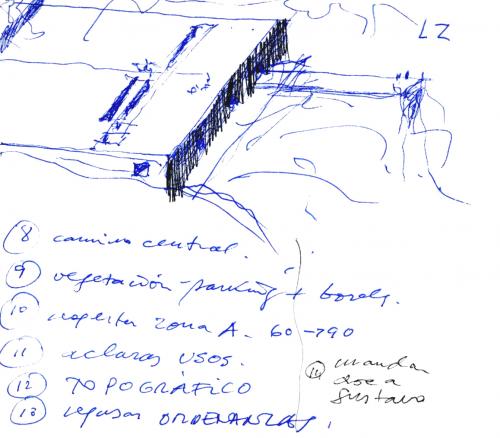 LZ
8 camino central.
9 vegetación - parking + bordes.
10 zona A. 60-790
11 aclarar usos.
12 TOPOGRÁFICO
13 repasar ORDENANZAS.
14 mandar
doc a
Gustavo